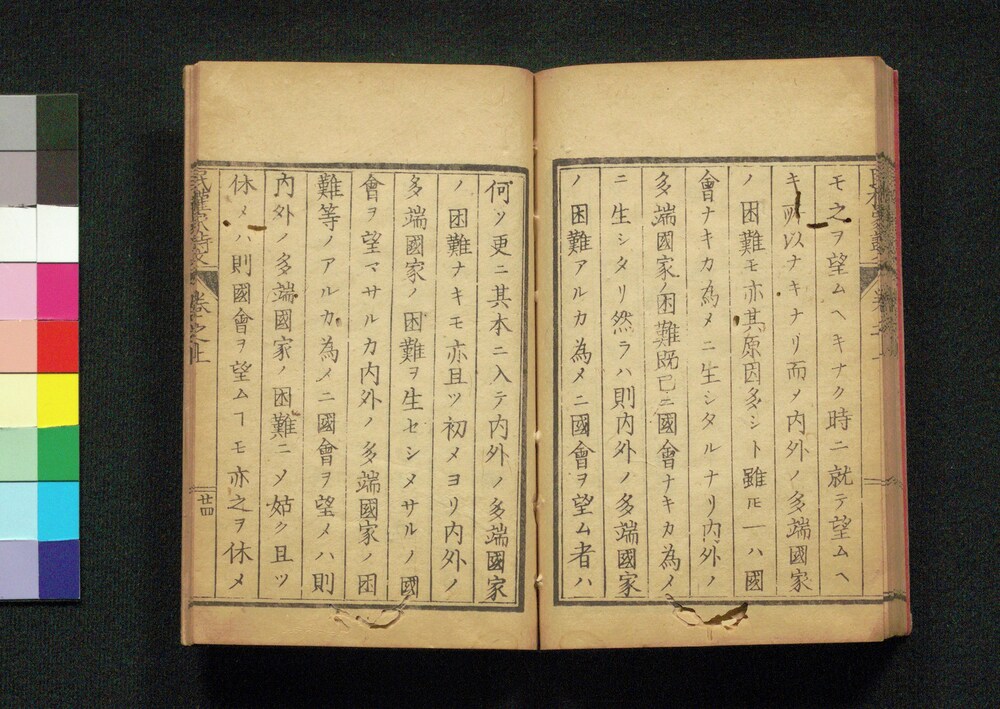 モ之ヲ望ムヘキナク時ニ就テ望ムヘ
キ所以ナキナリ而メ内外ノ多端國家
ノ困難モ亦其原因多シト雖モ一ハ國
會ナキカ為メニ生シタルナリ内外ノ
多端國家ノ困難既已ニ國會ナキカ為メ
ニ生シタリ然ラハ則内外ノ多端國家
ノ困難アルカ為メニ國會ヲ望ム者ハ
何ソ更ニ其本ニ入テ内外ノ多端國家
ノ困難ナキモ亦且ツ初メヨリ内外ノ
多端國家ノ困難ヲ生セシメサルノ國
會ヲ望マサルカ内外ノ多端國家ノ困
難等ノアルカ為メニ國會ヲ望メハ則
内外ノ多端國家ノ困難ニメ姑ク且ツ
休メハ則國會ヲ望ムヿモ亦之ヲ休メ
卷之上
廿四